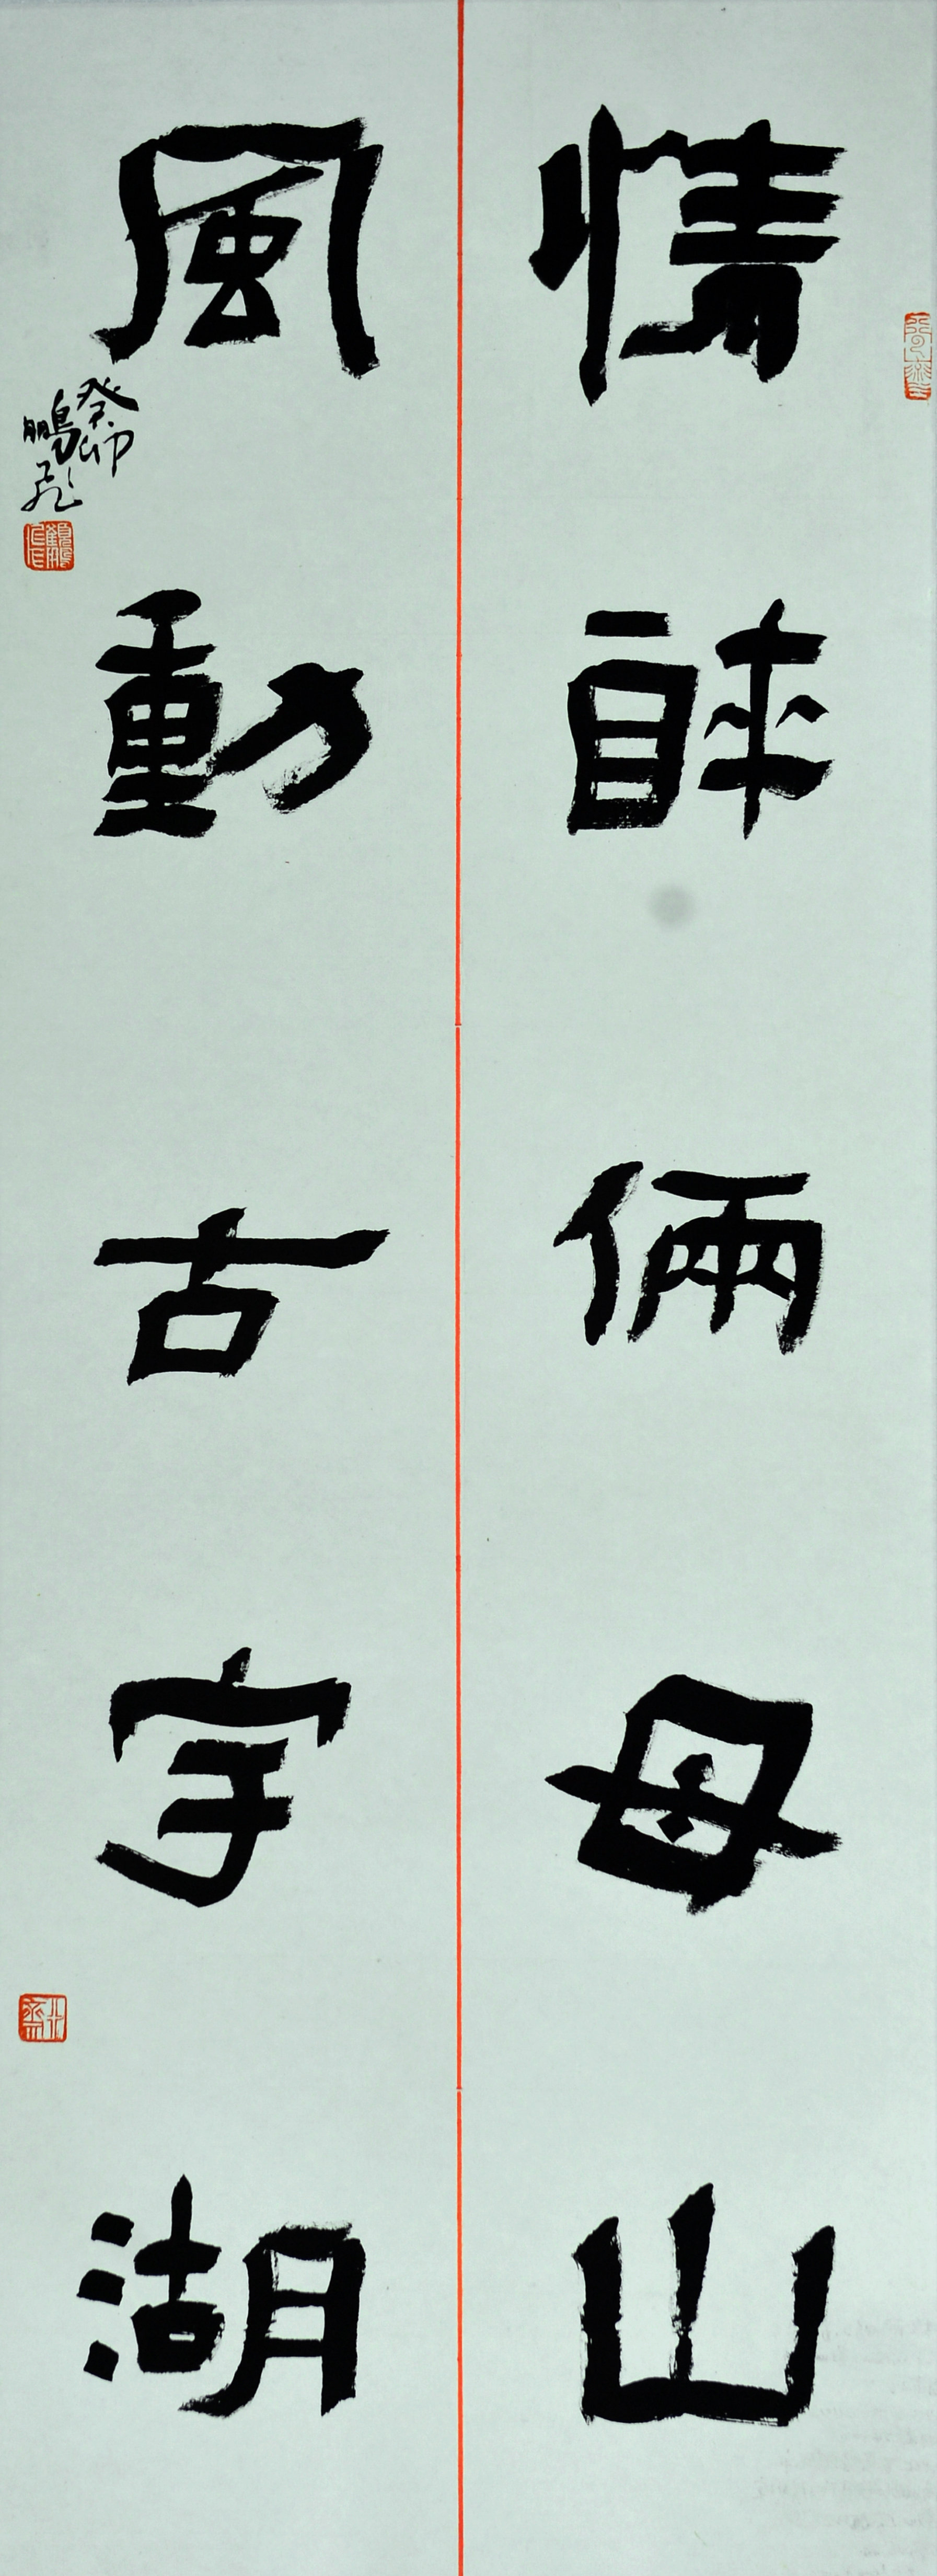 情醉倆母山
風動古宇湖
癸卯
鵬飛